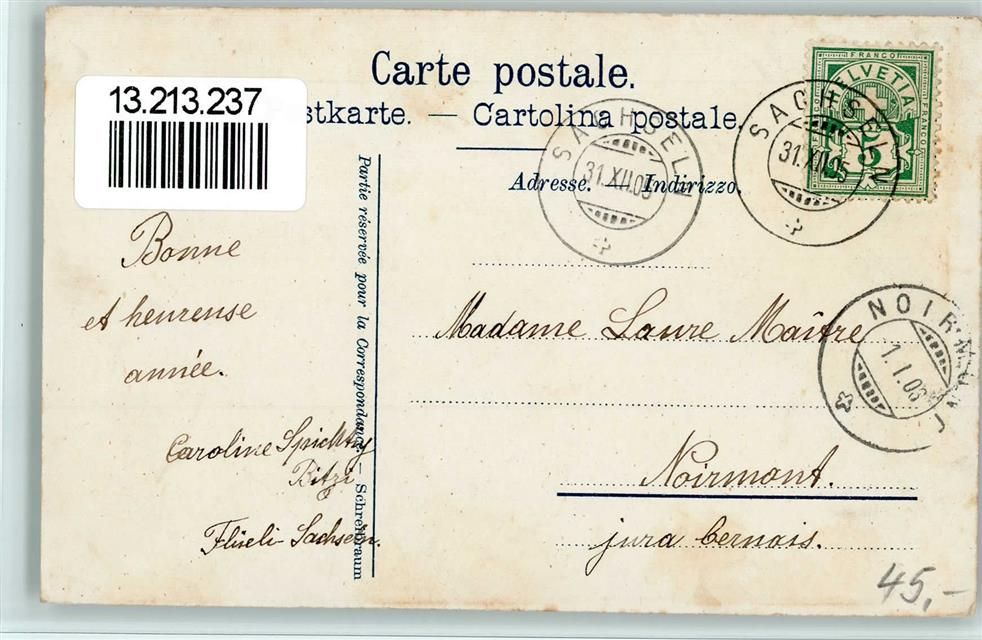 Carte postale.
13.213.237
stkarte. — Cartolina postale.
FRANCO
HELVETIA
FRANCO
5
SACHSELN
31.XII.05
SACHSELN
31.XII.05
Adresse. Indirizzo.
Partie réservée pour la Correspondance. — Schreibraum
Bonne
et heureuse
année.
Caroline Spichtig
Bitzi
Flüeli Sachseln.
Madame Laure Maître
Noirmont.
jura bernois.
NOIRM
1.I.06
45,-